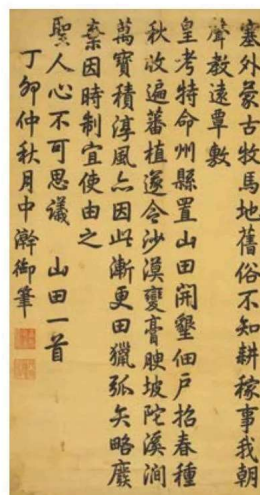 塞外蒙古牧馬地舊俗不知耕稼事我朝
聲教遠覃敷
皇考特命州縣置山田開墾佃戶招春種
秋收遍蕃植遂令沙漠變膏腴坡陀溪澗
萬寶積淳風亦因此漸更田獵弧矢略廢
棄因時制宜使由之
聖人心不可思議　山田一首
丁卯仲秋月中澣御筆